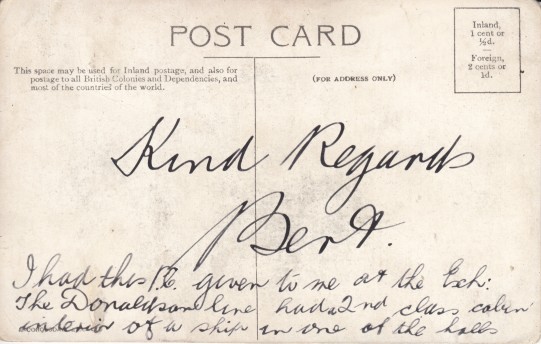 POST CARD
Inland,
1 cent or
½d.
Foreign,
2 cents or
1d.
This space may be used for Inland postage, and also for
postage to all British Colonies and Dependencies, and
most of the countries of the world.
(FOR ADDRESS ONLY)
Kind Regards
Bert.
I had this P.C. given to me at the Exh:
The Donaldson line had a 2nd class cabin
interior of a ship in one of the halls